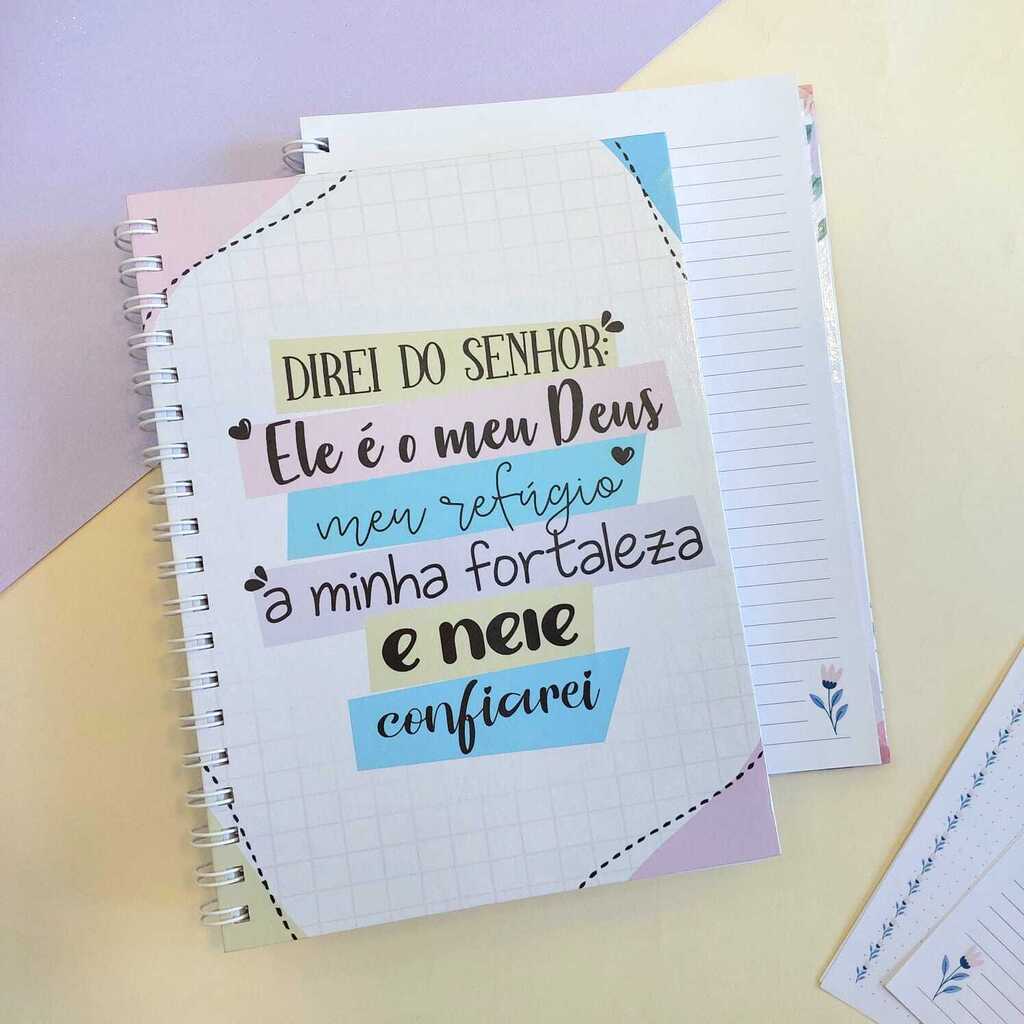 DIREI DO SENHOR:
Ele é o meu Deus
meu refúgio
a minha fortaleza
e nele
confiarei